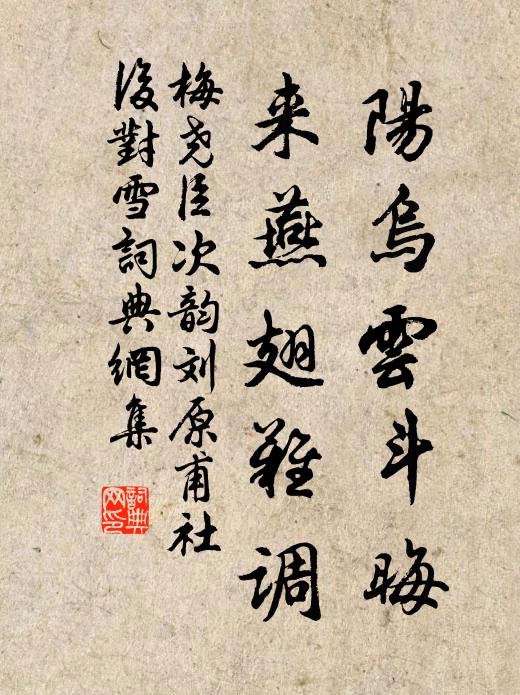 陽烏雲斗晦
来燕翅難調
梅尧臣次韵刘原甫社
後對雪詞典網集
詞典网印